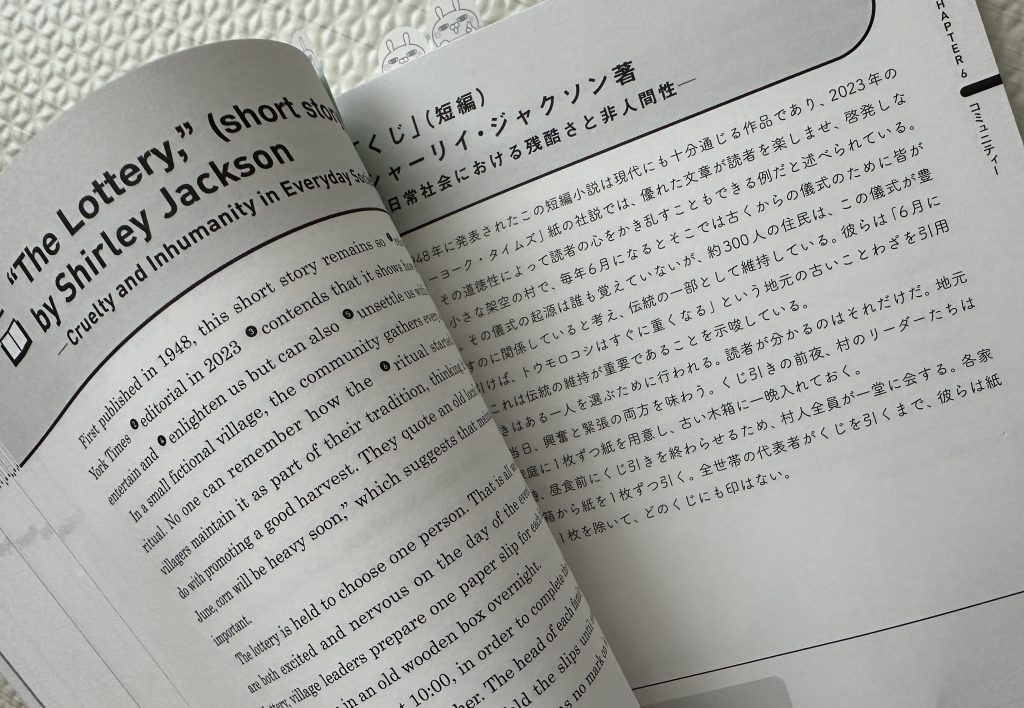 “The Lottery,” (short story)
by Shirley Jackson
—Cruelty and Inhumanity in Everyday
First published in 1948, this short story remains so
York Times ❷ editorial in 2023 ❸ contends that it shows how
entertain and ❹ enlighten us but can also ❺ unsettle us
In a small fictional village, the community gathers every
ritual. No one can remember how the ❻ ritual started,
villagers maintain it as part of their tradition, thinking
do with promoting a good harvest. They quote an old
June, corn will be heavy soon,” which suggests that
important.
The lottery is held to choose one person. That is all
are both excited and nervous on the day of the
lottery, village leaders prepare one paper slip for each
in an old wooden box overnight.
10:00, in order to complete the
The head of each
the slips until
no mark
くじ」(短編)
ャーリイ・ジャクソン著
日常社会における残酷さと非人間性—
48年に発表されたこの短編小説は現代にも十分通じる作品であり、2023年の
ーヨーク・タイムズ」紙の社説では、優れた文章が読者を楽しませ、啓発しな
その道徳性によって読者の心をかき乱すこともできる例だと述べられている。
小さな架空の村で、毎年6月になるとそこでは古くからの儀式のために皆が
その儀式の起源は誰も覚えていないが、約300人の住民は、この儀式が豊
のに関係していると考え、伝統の一部として維持している。彼らは「6月に
けば、トウモロコシはすぐに重くなる」という地元の古いことわざを引用
これは伝統の維持が重要であることを示唆している。
きはある一人を選ぶために行われる。読者が分かるのはそれだけだ。地元
当日、興奮と緊張の両方を味わう。くじ引きの前夜、村のリーダーたちは
家庭に1枚ずつ紙を用意し、古い木箱に一晩入れておく。
、昼食前にくじ引きを終わらせるため、村人全員が一堂に会する。各家
箱から紙を1枚ずつ引く。全世帯の代表者がくじを引くまで、彼らは紙
1枚を除いて、どのくじにも印はない。
HAPTER 6
コミュニティー